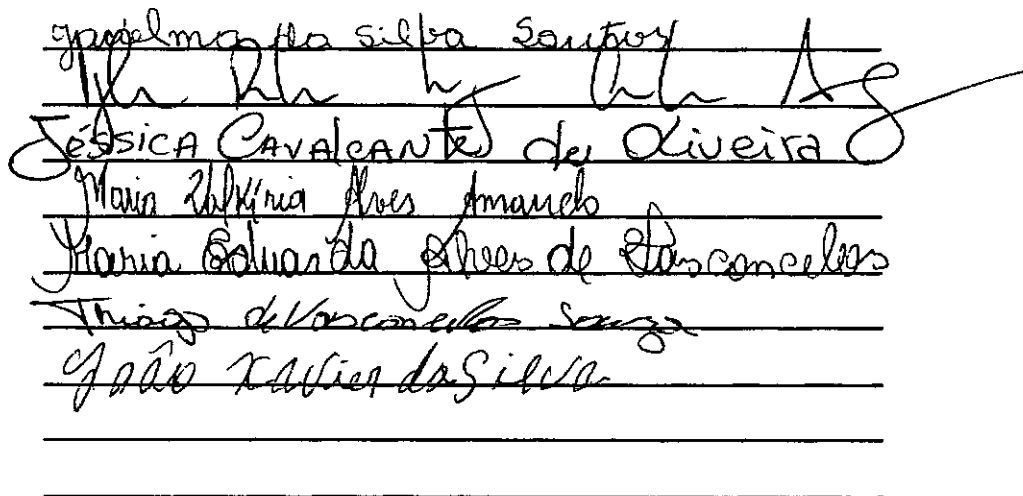 da Silva Santos
Jéssica CAVALCANTE de Oliveira
Maria Valkíria Alves Amando
Maria Eduarda Alves de Vasconcelos
Thiago de Vasconcellos Souza
João Xavier da Silva